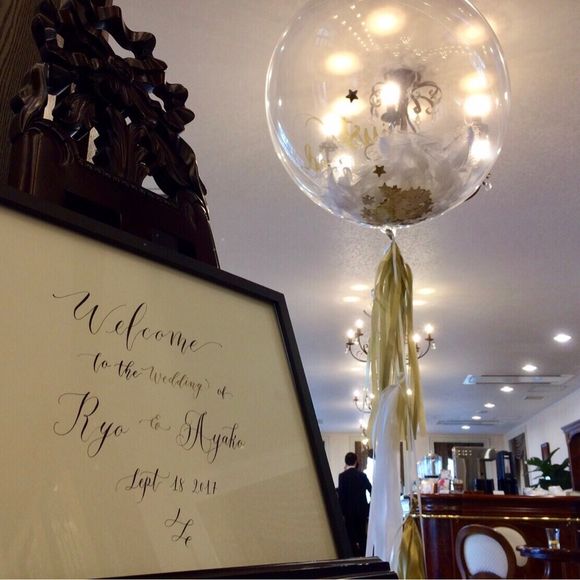 Welcome
to the Wedding of
Ryo & Ayako
Sept 18 2017